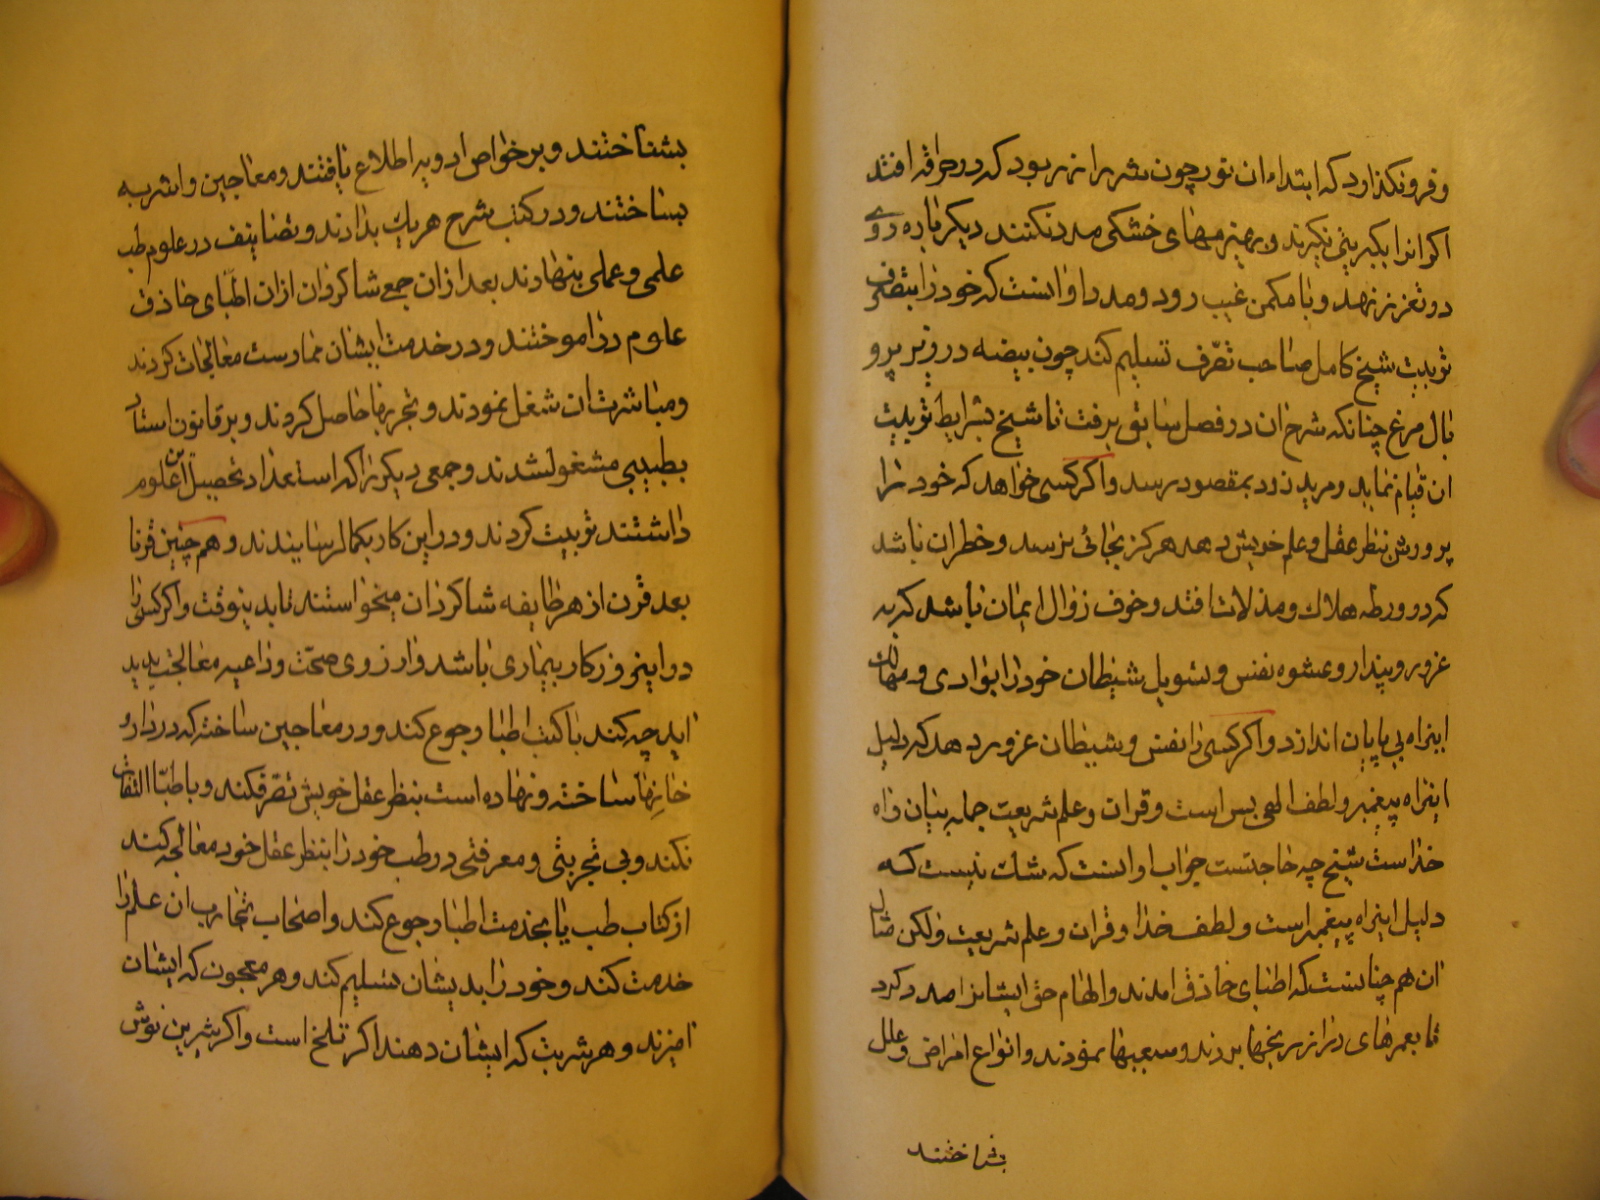 و فرو نکذارد که ابتداء ان نور چون شررا نر بود که در حراقه افتد
اکر انرا بکبریتی نکیرند و بهیزمهای خشکی مدد نکنند دیکر باره روی
در تعزز نهد و با مکمن غیب رود و مدد او انست که خود را بتصرف
تربیت شیخ کامل صاحب تصرف تسلیم کند چون بیضه در زیر پر و
بال مرغ چنانکه شرح ان در فصل سابق برفت تا شیخ بشرایط تربیت
ان قیام نماید و مرید زود بمقصود رسد و اکر کسی خواهد که خود را
پرورش بنظر عقل و علم خویش دهد هرکز بجائی نرسد و خطر ان باشد
که در ورطه هلاک و مذلات افتد و خوف زوال ایمان باشد که به
غرور و پندار و عشوه نفس و تسویل شیطان خود را بوادی و مهالک
این راه بی پایان اندازد و اکر کسی را نفس و شیطان غرور دهد که دلیل
این راه پیغمبر و لطف الهی بس است و قران و علم شریعت جمله بیان راه
خداست شیخ چه حاجتست جواب او انست که شک نیست که
دلیل این راه پیغمبر است و لطف خدا و قران و علم شریعت ولکن مثال
ان هم چنانست که اطبای حاذق امدند و الهام حق ایشانرا مدد کرد
تا بعمرهای دراز رنجها بردند و سعیها نمودند و انواع امراض و علل
بشناختند
بشناختند و بر خواص ادویه اطلاع یافتند و معاجین و اشربه
بساختند و در کتب شرح هر یک بدادند و تصانیف در علوم طب
علمی و عملی بنهادند بعد ازان جمع شاکردان ازان اطبای حاذق
علوم در اموختند و در خدمت ایشان ممارست معالجات کردند
و مباشرت ان شغل نمودند و تجربها حاصل کردند و بر قانون استاد
بطبیبی مشغول شدند و جمعی دیکر را که استعداد تحصیل این علوم
داشتند تربیت کردند و در این کار بکمال رسانیدند و هم چنین قرنا
بعد قرن از هر طایفه شاکردان میخواستند تا بدینوقت و اکر کسی را
در این روزکار بیماری باشد و ارزوی صحت و داعیه معالجت پدید
اید چه کند با کتب اطبا رجوع کند و در معاجین ساخته که در دارو
خانها ساخته و نهاده است بنظر عقل خویش تصرف کند و باطبا التفات
نکند و بی تجربتی و معرفتی در طب خود را بنظر عقل خود معالجه کند
از کتاب طب یا بخدمت اطبا رجوع کند و اصحاب تجارب ان علم را
خدمت کند و خود را بدیشان تسلیم کند و هر معجون که ایشان
امیزند و هر شربت که ایشان دهند اکر تلخ است و اکر شیرین نوش